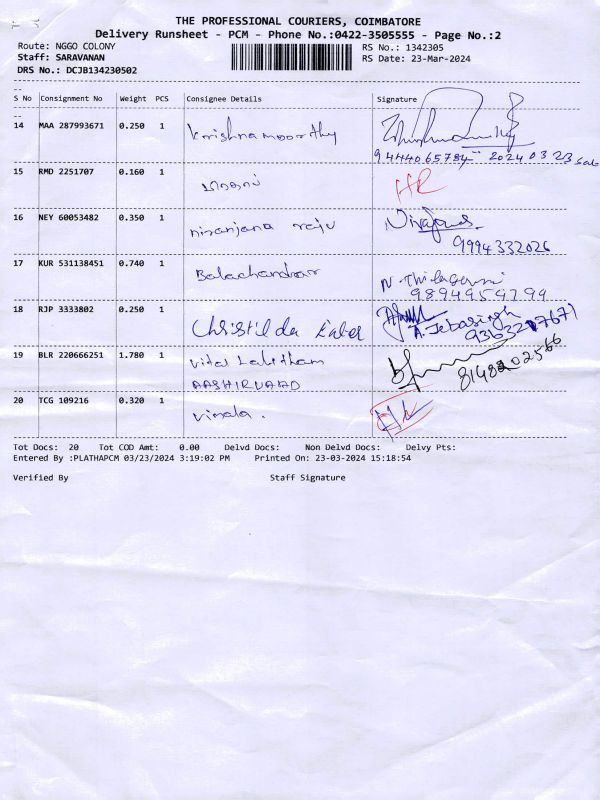 THE PROFESSIONAL COURIERS, COIMBATORE
Delivery Runsheet - PCM - Phone No.:0422-3505555 - Page No.:2
Route: NGGO COLONY
Staff: SARAVANAN
DRS No.: DCJB134230502
RS No.: 1342305
RS Date: 23-Mar-2024
S No Consignment No Weight PCS Consignee Details Signature
14 MAA 287993671 0.250 1 Krishnamoorthy
9444065784 2024 03 23 Sat
15 RMD 2251707 0.160 1
16 NEY 60053482 0.350 1 niranjana raju
9994332026
17 KUR 531138451 0.740 1 Balachandran
N. Thilagavni
9894959799
18 RJP 3333802 0.250 1 Christilda
A. Jebasingh
9363217671
19 BLR 220666251 1.780 1 Vital Lalitham
AASHIRVAAD
8148202566
20 TCG 109216 0.320 1 Vimala.
Tot Docs: 20 Tot COD Amt: 0.00 Delvd Docs: Non Delvd Docs: Delvy Pts:
Entered By :PLATHAPCM 03/23/2024 3:19:02 PM Printed On: 23-03-2024 15:18:54
Verified By Staff Signature